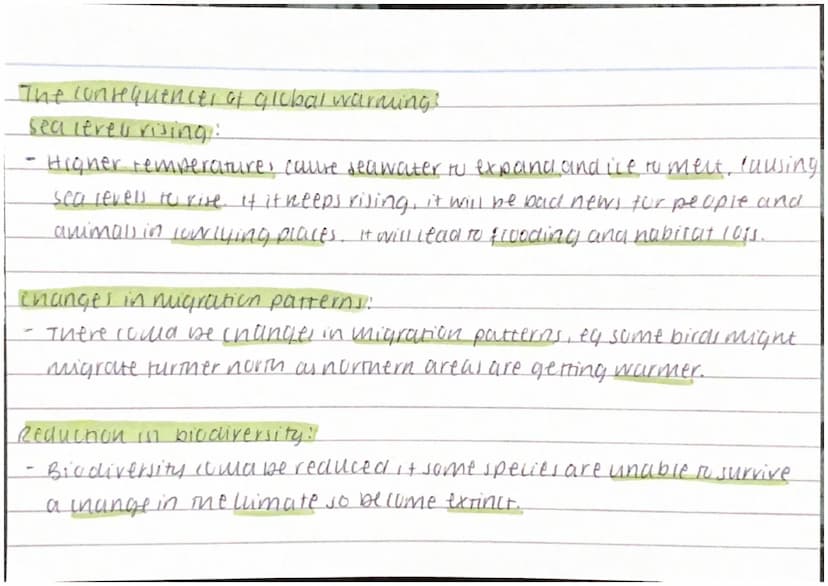 The consequences of global warming:
Sea levels rising:
- Higher temperatures cause seawater to expand and ice to melt, causing
sea levels to rise. If it keeps rising, it will be bad news for people and
animals in lowlying places. It will lead to flooding and habitat loss.
Changes in migration patterns:
- There could be changes in migration patterns, eg some birds might
migrate further north as northern areas are getting warmer.
Reduction in biodiversity:
- Biodiversity could be reduced if some species are unable to survive
a change in the climate so become extinct.